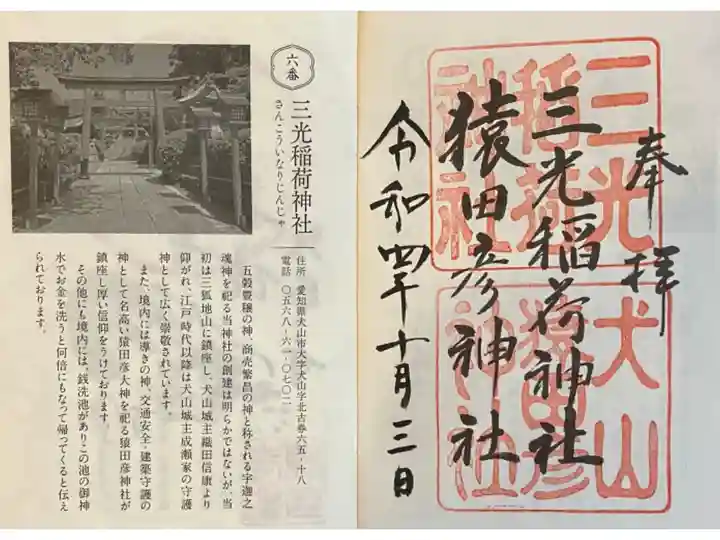 六番
三光稲荷神社
さんこういなりじんじゃ
住所　愛知県犬山市大字犬山字北古券六五‐十八
電話　〇五六八‐六一‐〇七〇二
五穀豊穣の神、商売繁昌の神と称される宇迦之
魂神を祀る当神社の創建は明らかではないが、当
初は三狐地山に鎮座し、犬山城主織田信康より
仰がれ、江戸時代以降は犬山城主成瀬家の守護
神として広く崇敬されています。
また、境内には導きの神、交通安全・建築守護の
神として名高い猿田彦大神を祀る猿田彦神社が
鎮座し厚い信仰をうけております。
その他にも境内には、銭洗池がありこの池の御神
水でお金を洗うと何倍にもなって帰ってくると伝え
られております。
奉拝
三光稲荷神社
猿田彦神社
令和四年十月三日
犬山
三光
稲荷
神社
猿田彦
神社